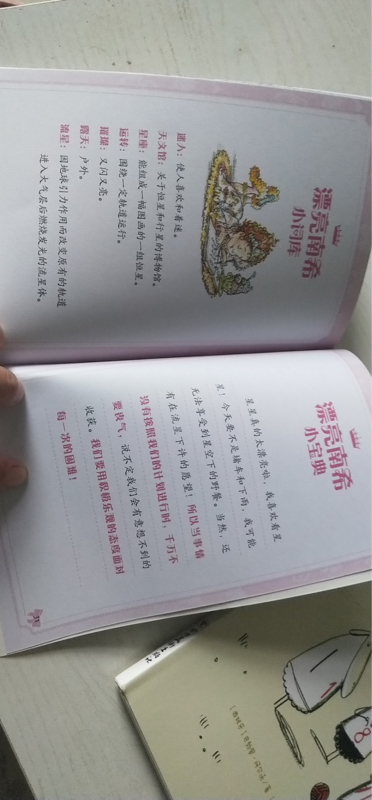 漂亮南希
小词库
迷人：使人喜欢和着迷。
天文馆：关于恒星和行星的博物馆。
星座：能组成一幅图画的一组恒星。
运转：围绕一定轨道运行。
璀璨：又闪又亮。
露天：户外。
流星：因地球引力作用而改变原有的轨道
进入大气层后燃烧发光的流星体。
漂亮南希
小宝典
星星真的太漂亮啦，我喜欢看星
星！今天要不是堵车和下雨，我可能
无法享受到星空下的野餐。当然，还
有在流星下许的愿望！所以当事情
没有按照我们的计划进行时，千万不
要丧气，说不定我们会有意想不到的
收获。我们要用积极乐观的态度面对
每一次的困难！